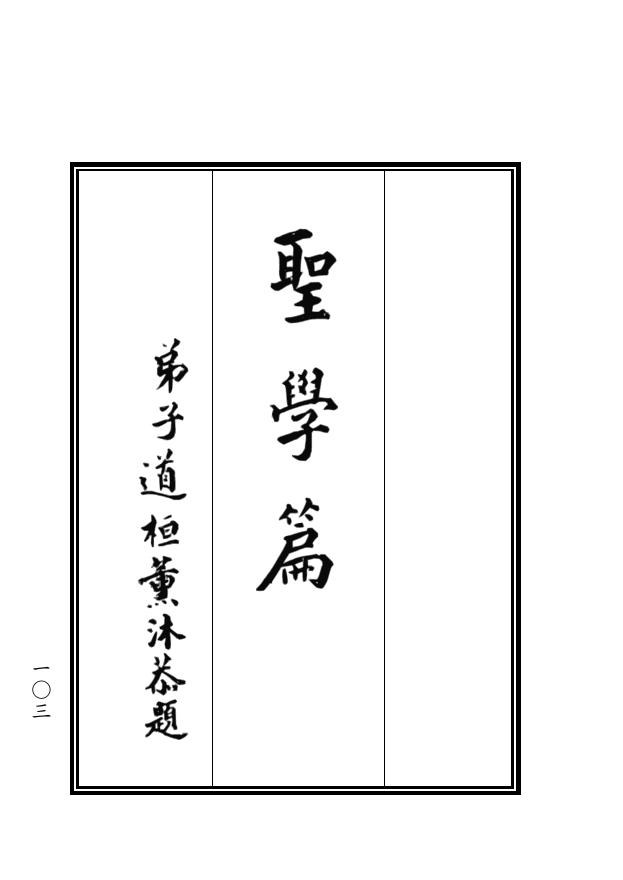 聖學篇
弟子道桓薰沐恭題
一〇三